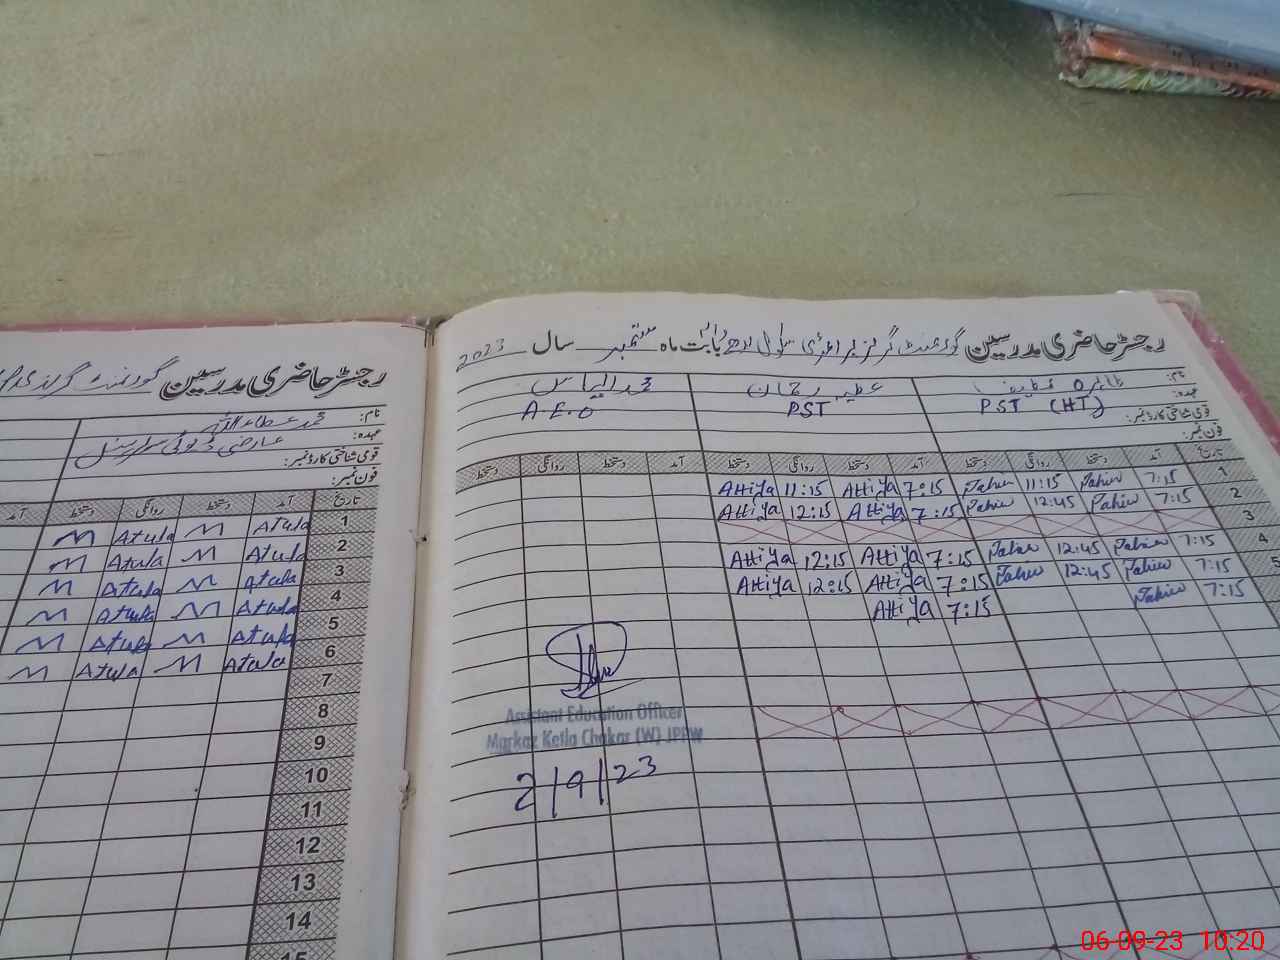 رجسٹر حاضری مدرسین گورنمنٹ گرلز
نام: محمد عطاءاللہ
عہدہ: عارضی ڈیوٹی
قومی شناختی کارڈ نمبر:
فون نمبر:
تاریخ آمد دستخط روانگی دستخط آمد
1 Atula M Atula M
2 Atula M Atula M
3 Atula M Atula M
4 Atula M Atula M
5 Atula M Atula M
6 Atula M Atula M
7
8
9
10
11
12
13
14
15
رجسٹر حاضری مدرسین گورنمنٹ گرلز پرائمری سکول بابت ماہ ستمبر سال 2023
نام: طاہرہ عطیہ رحمان محمد الیاس
عہدہ: PST (HT) PST A.E.O
قومی شناختی کارڈ نمبر:
فون نمبر:
تاریخ آمد دستخط روانگی دستخط آمد دستخط روانگی دستخط آمد دستخط روانگی دستخط
1 7:15 Tahir 11:15 Tahir 7:15 Attiya 11:15 Attiya
2 7:15 Tahir 12:45 Tahir 7:15 Attiya 12:15 Attiya
3
4 7:15 Tahir 12:45 Tahir 7:15 Attiya 12:15 Attiya
5 7:15 Tahir 12:45 Tahir 7:15 Attiya 12:15 Attiya
7:15 Tahir 7:15 Attiya
Assistant Education Officer
Markaz Kotla Chakar (W) JPPW
2/9/23
06-09-23 10:20